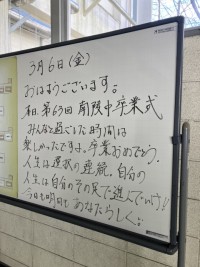 3月6日(金)
おはようございます。
本日、第63回 南陵中卒業式
みんなと過ごした時間は
楽しかったですよ。卒業おめでとう。
人生は選択の連続、自分の
人生は自分のその足で進んでいけ!!
今日も明日もあなたらしく。